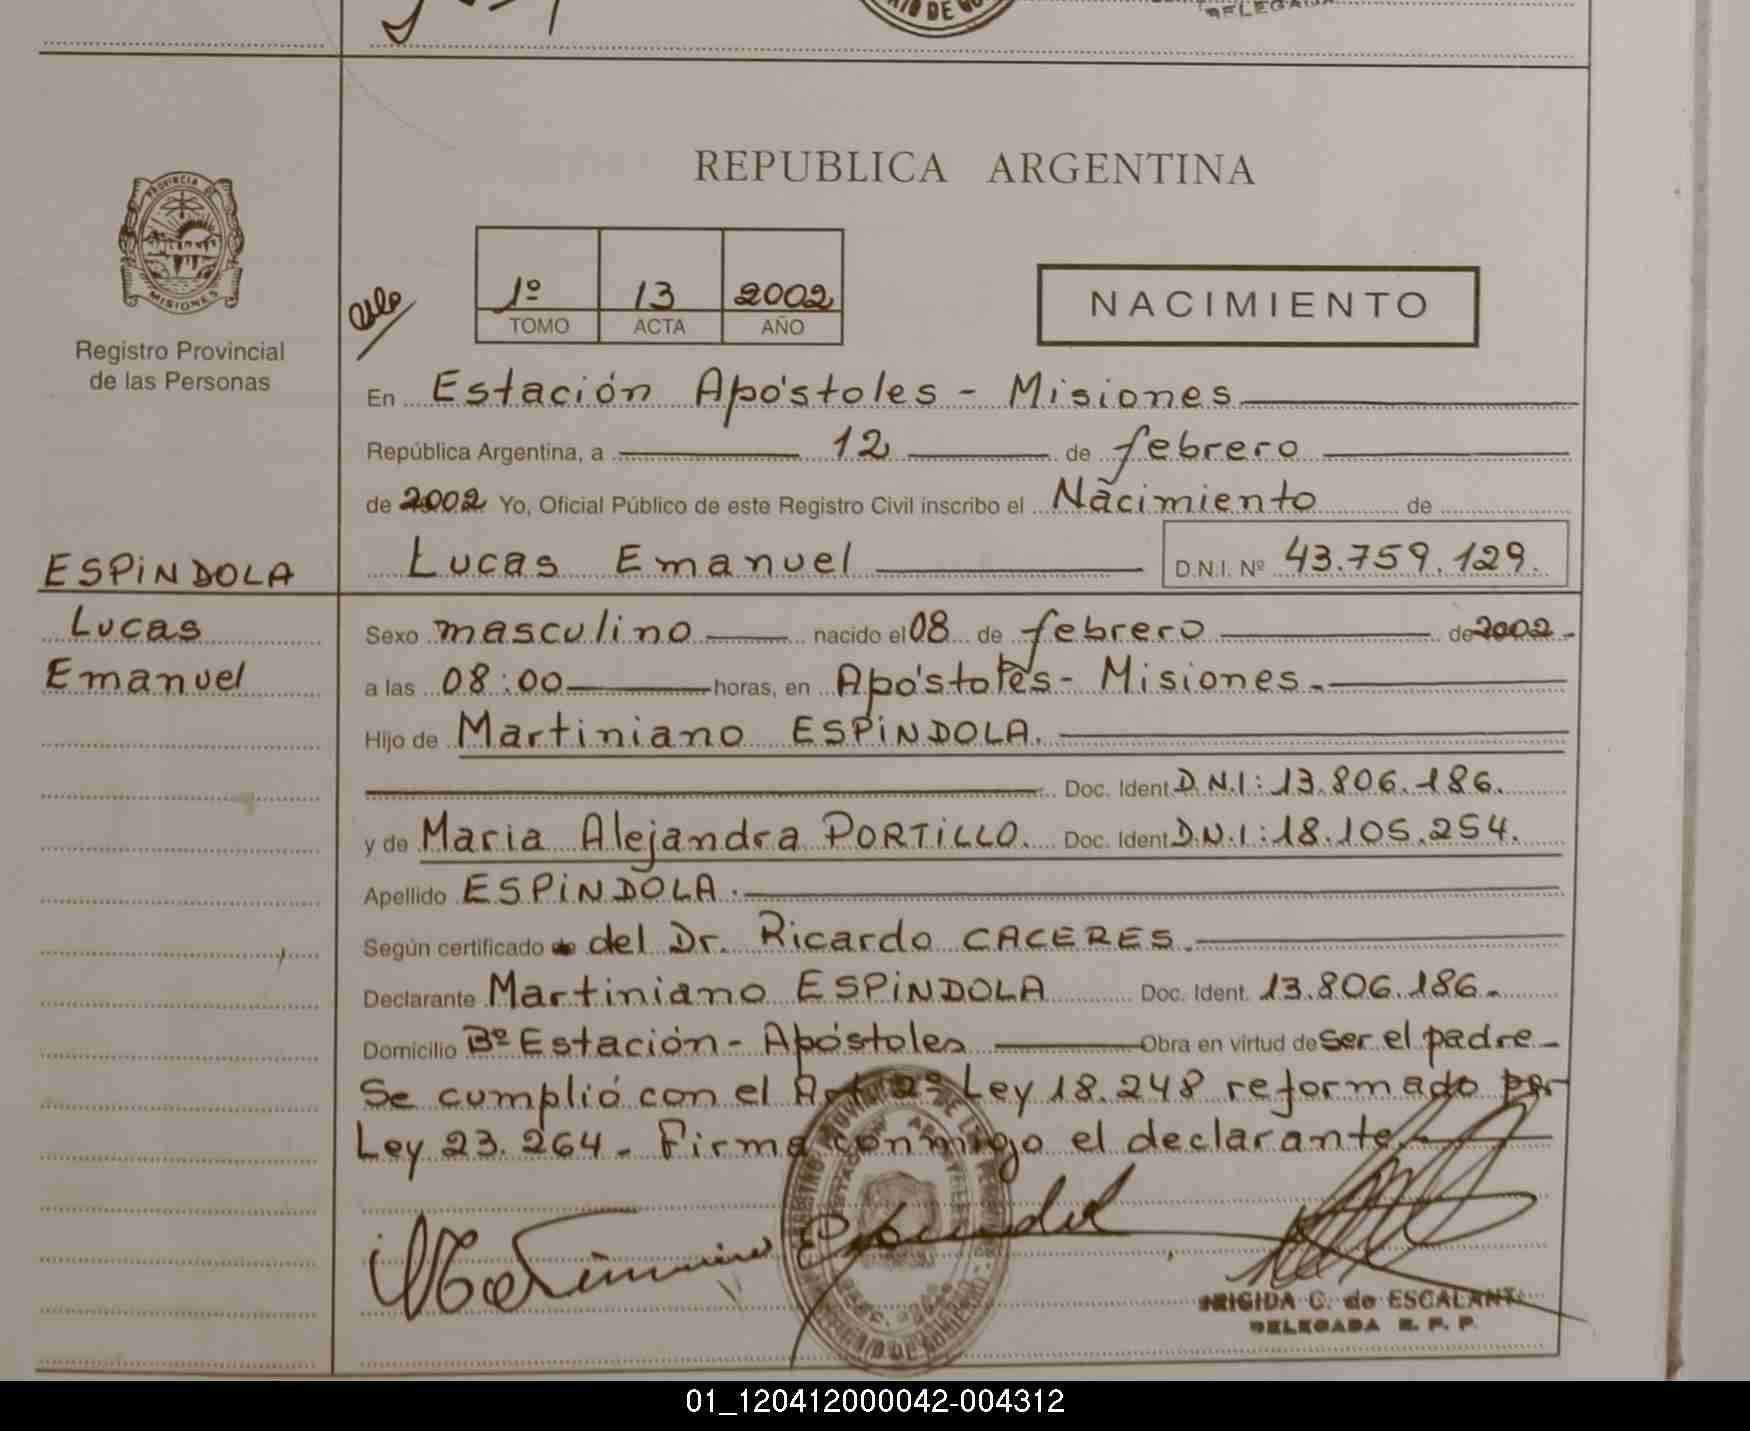 DELEGADA
REPUBLICA ARGENTINA
PROVINCIA DE
MISIONES
Registro Provincial
de las Personas
1º 13 2002
TOMO ACTA AÑO
NACIMIENTO
En Estación Apóstoles - Misiones
República Argentina, a 12 de febrero
de 2002 Yo, Oficial Público de este Registro Civil inscribo el Nacimiento de
ESPINDOLA Lucas Emanuel D.N.I. Nº 43.759.129.
Lucas Sexo masculino nacido el 08 de febrero de 2002 -
Emanuel a las 08:00 horas, en Apóstoles - Misiones.
Hijo de Martiniano ESPINDOLA.
Doc. Ident D.N.I: 13.806.186.
y de Maria Alejandra PORTILLO. Doc. Ident D.N.I: 18.105.254.
Apellido ESPINDOLA.
Según certificado de del Dr. Ricardo CACERES.
Declarante Martiniano ESPINDOLA Doc. Ident. 13.806.186.
Domicilio Bº Estación - Apóstoles Obra en virtud de ser el padre -
Se cumplió con el Art 2º Ley 18.248 reformado por
Ley 23.264 - Firma conmigo el declarante.
BRIGIDA C. de ESCALANT
DELEGADA R. P. P.
01_120412000042-004312